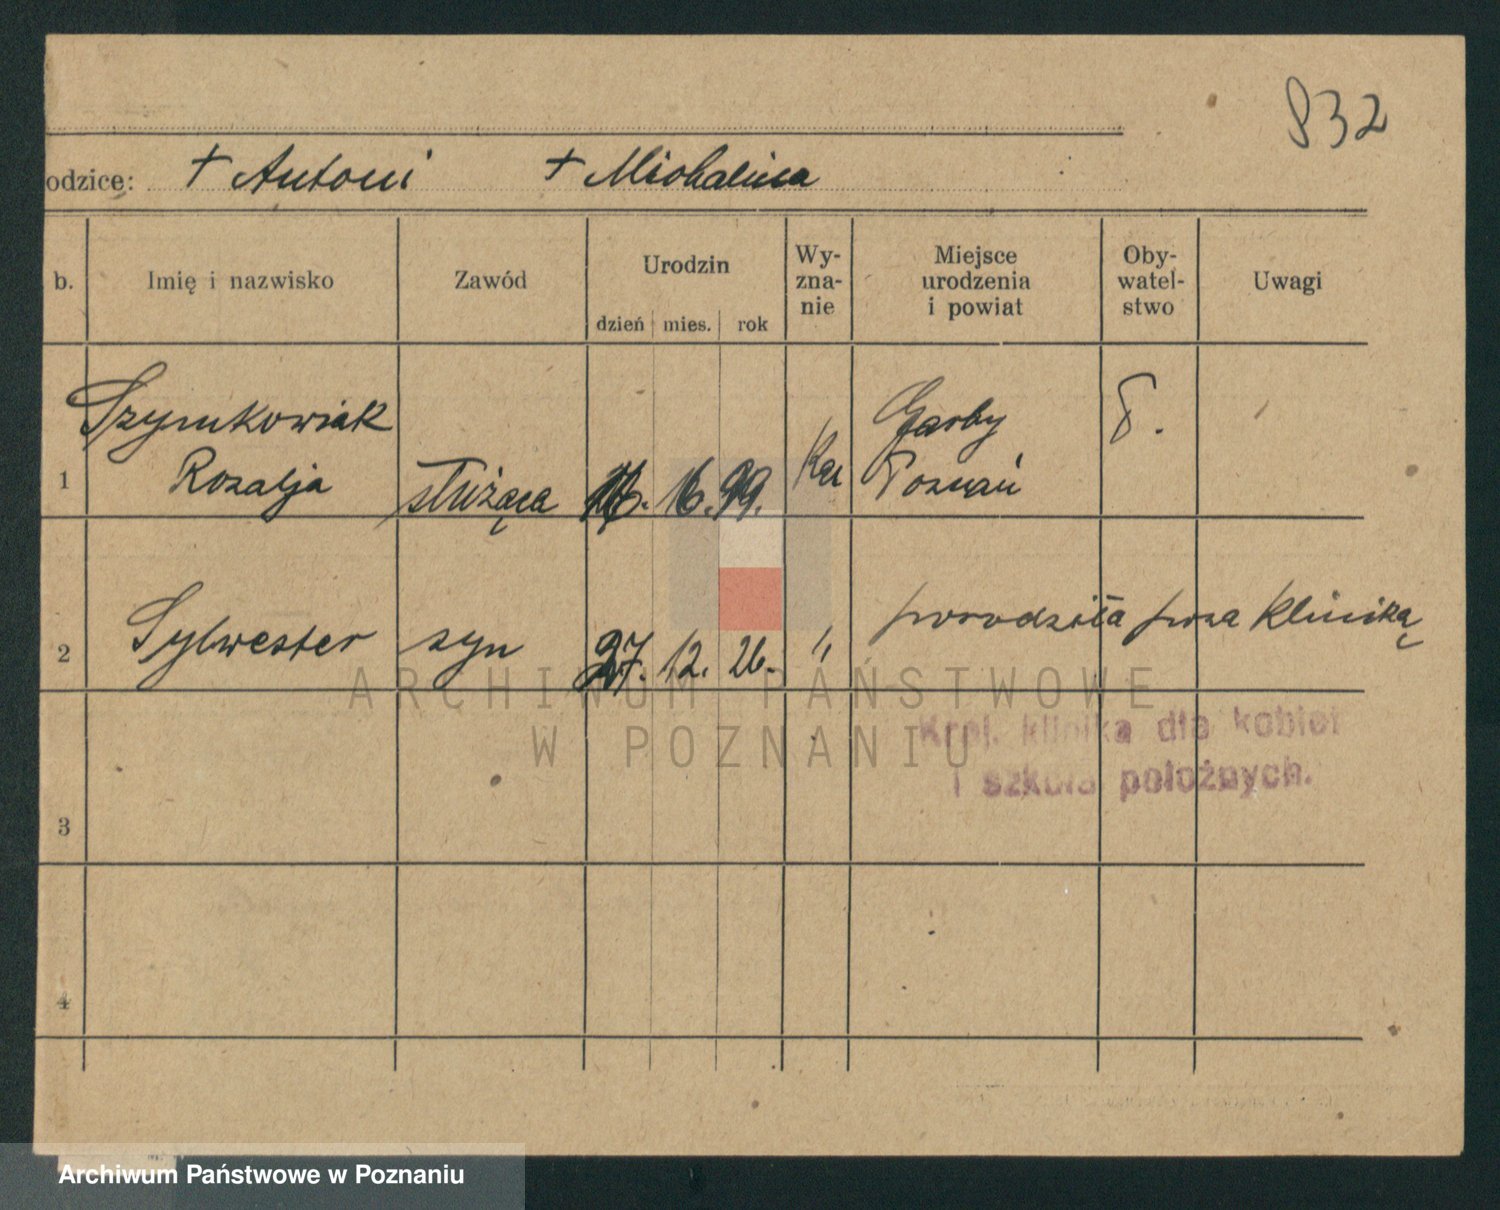 832
odzice: + Antoni + Michalina
b. Imię i nazwisko Zawód Urodzin dzień mies. rok Wy-zna-nie Miejsce urodzenia i powiat Oby-watel-stwo Uwagi
Szymkowiak Garby
1 Rozalja służąca 16. 6. 99. Kat Poznań
2 Sylwester syn 27. 12. 26. " porodziła poza kliniką
ARCHIWUM PAŃSTWOWE
W POZNANIU
Kraj. klinika dla kobiet
i szkoła położnych.
3
4
Archiwum Państwowe w Poznaniu